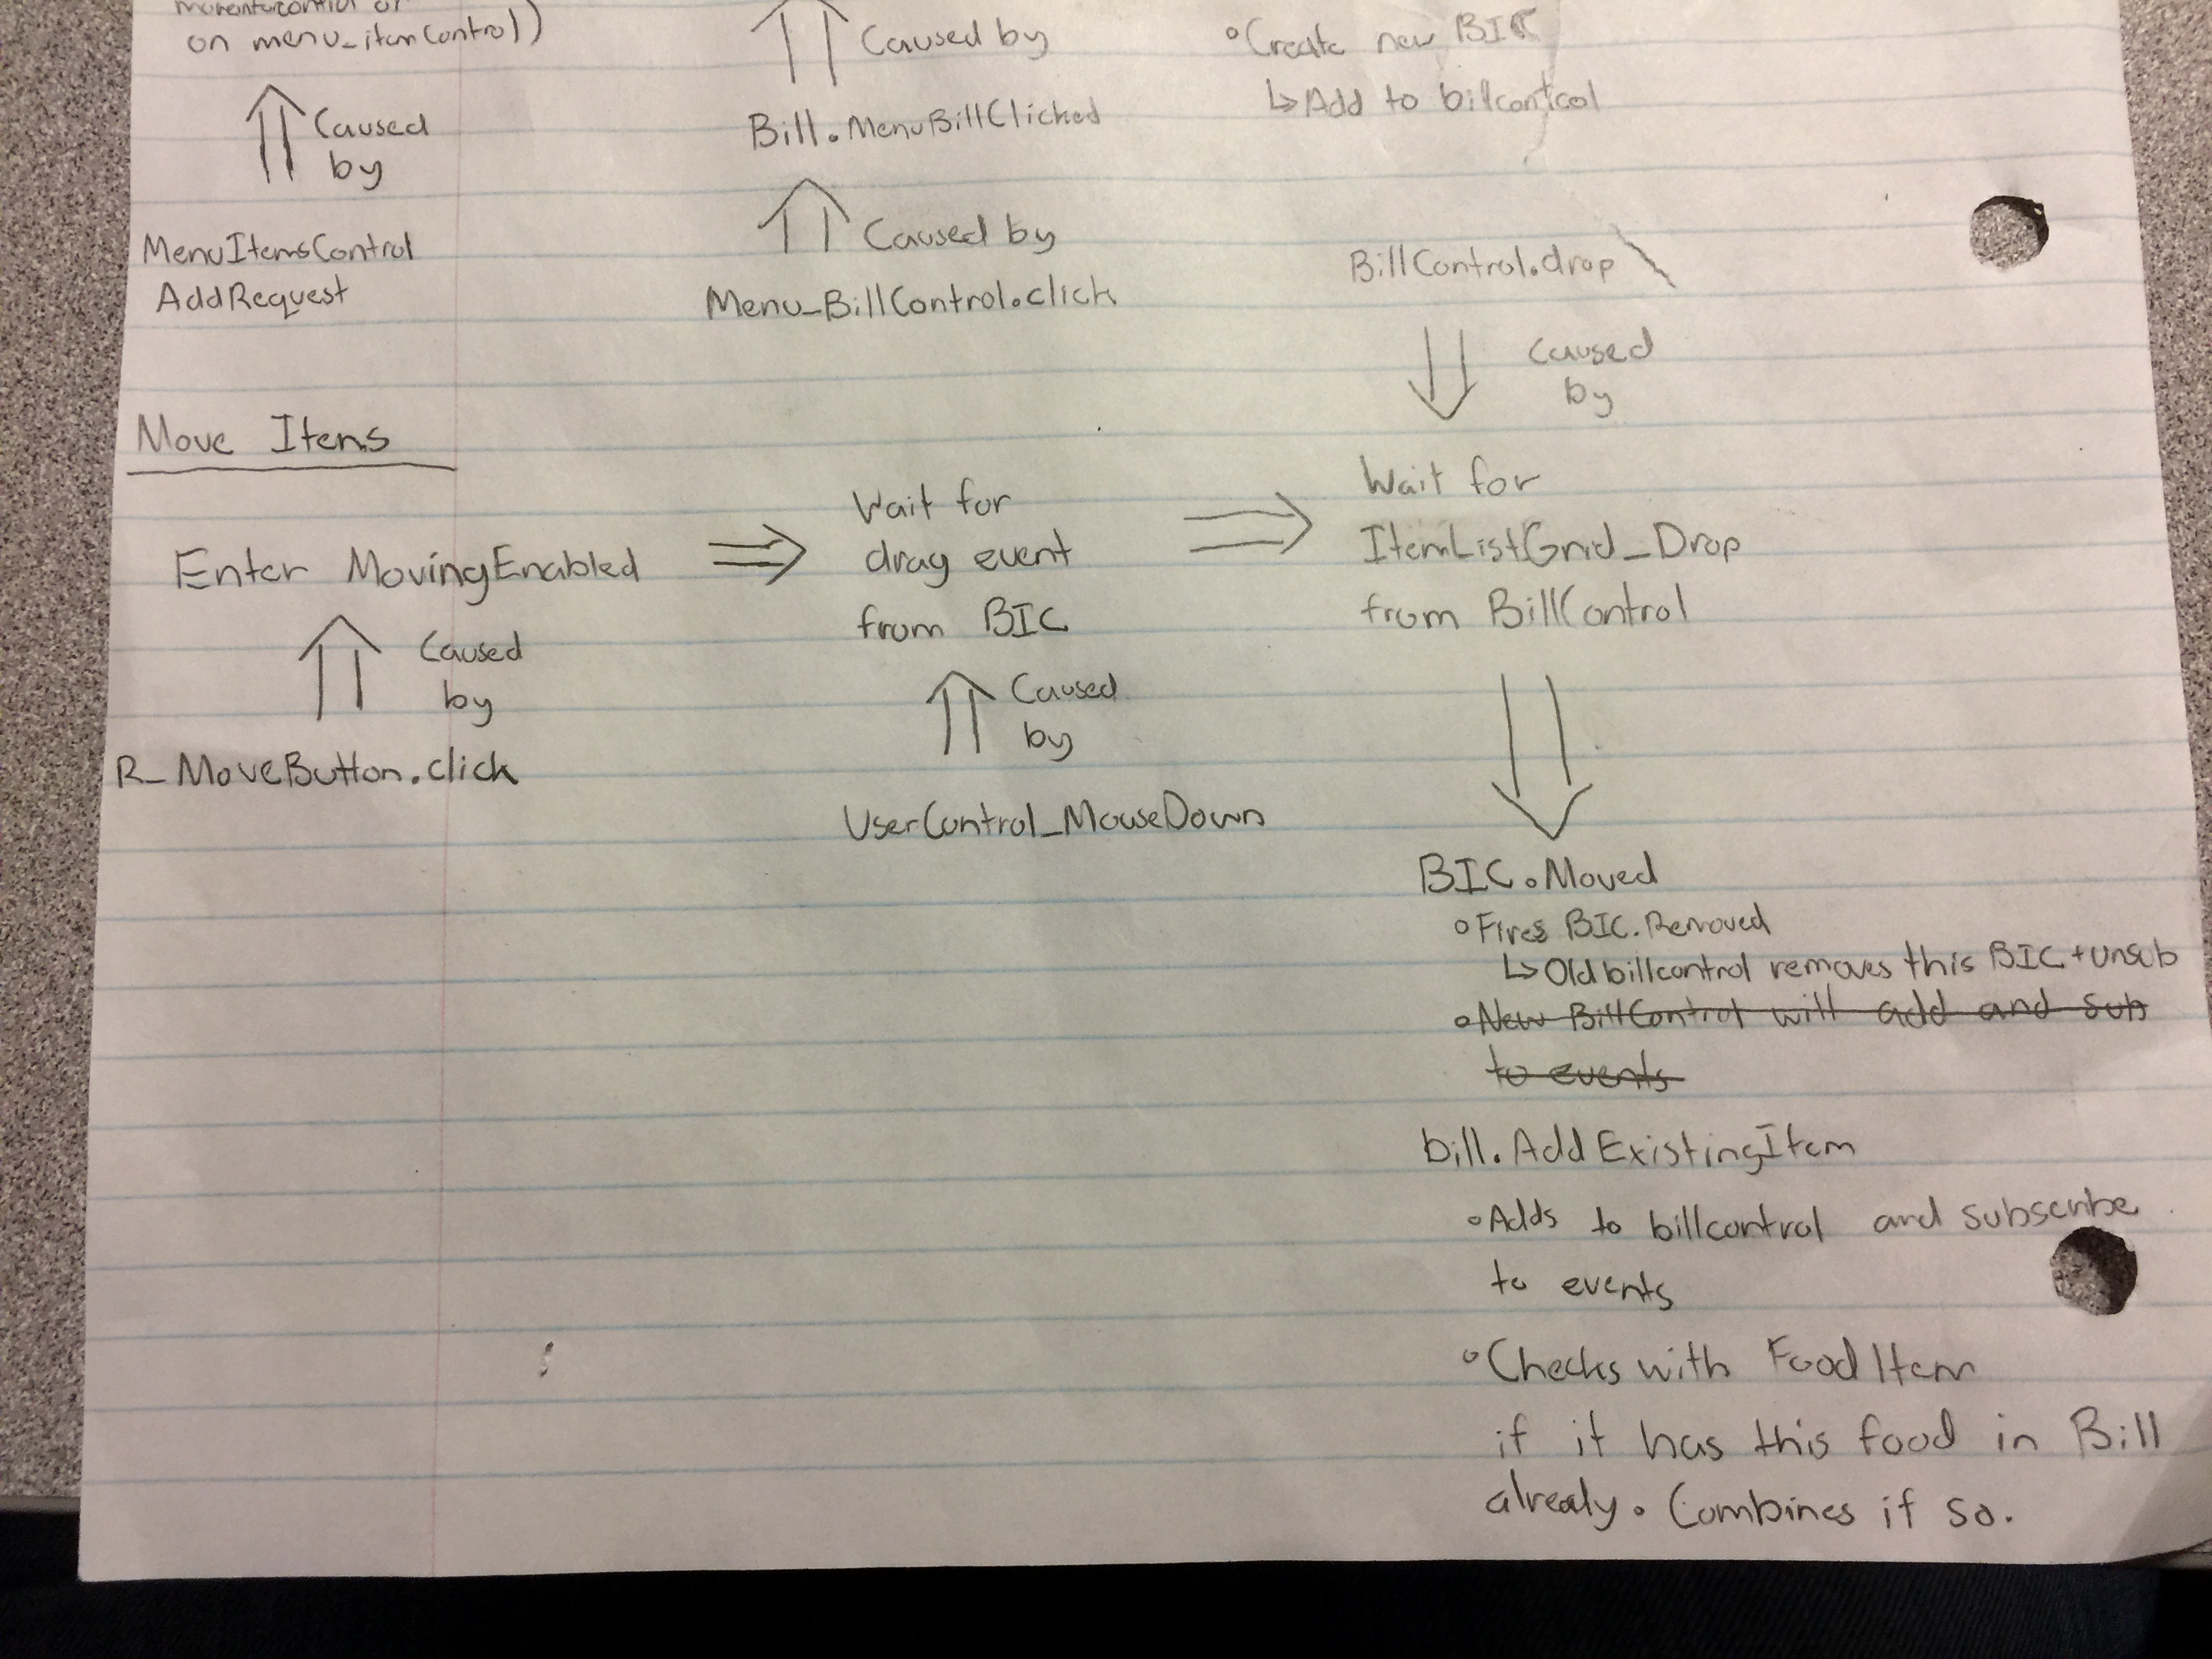 on menu_itemControl)
⇑ Caused
by
MenuItemsControl
AddRequest
⇑ Caused by
Bill.MenuBillClicked
⇑ Caused by
Menu_BillControl.click
°Create new BIC
↳Add to billcontrol
BillControl.drop
Caused
by
Move Items
Enter MovingEnabled ⇒
⇑ Caused
by
R_MoveButton.click
Wait for
drag event
from BIC
⇑ Caused
by
UserControl_MouseDown
⇒ Wait for
ItemListGrid_Drop
from BillControl
⇓
BIC.Moved
°Fires BIC.Removed
↳Old billcontrol removes this BIC + unsub
°New BillControl will add and sub
to events
bill.AddExistingItem
°Adds to billcontrol and subscribe
to events
°Checks with FoodItem
if it has this food in Bill
already. Combines if so.